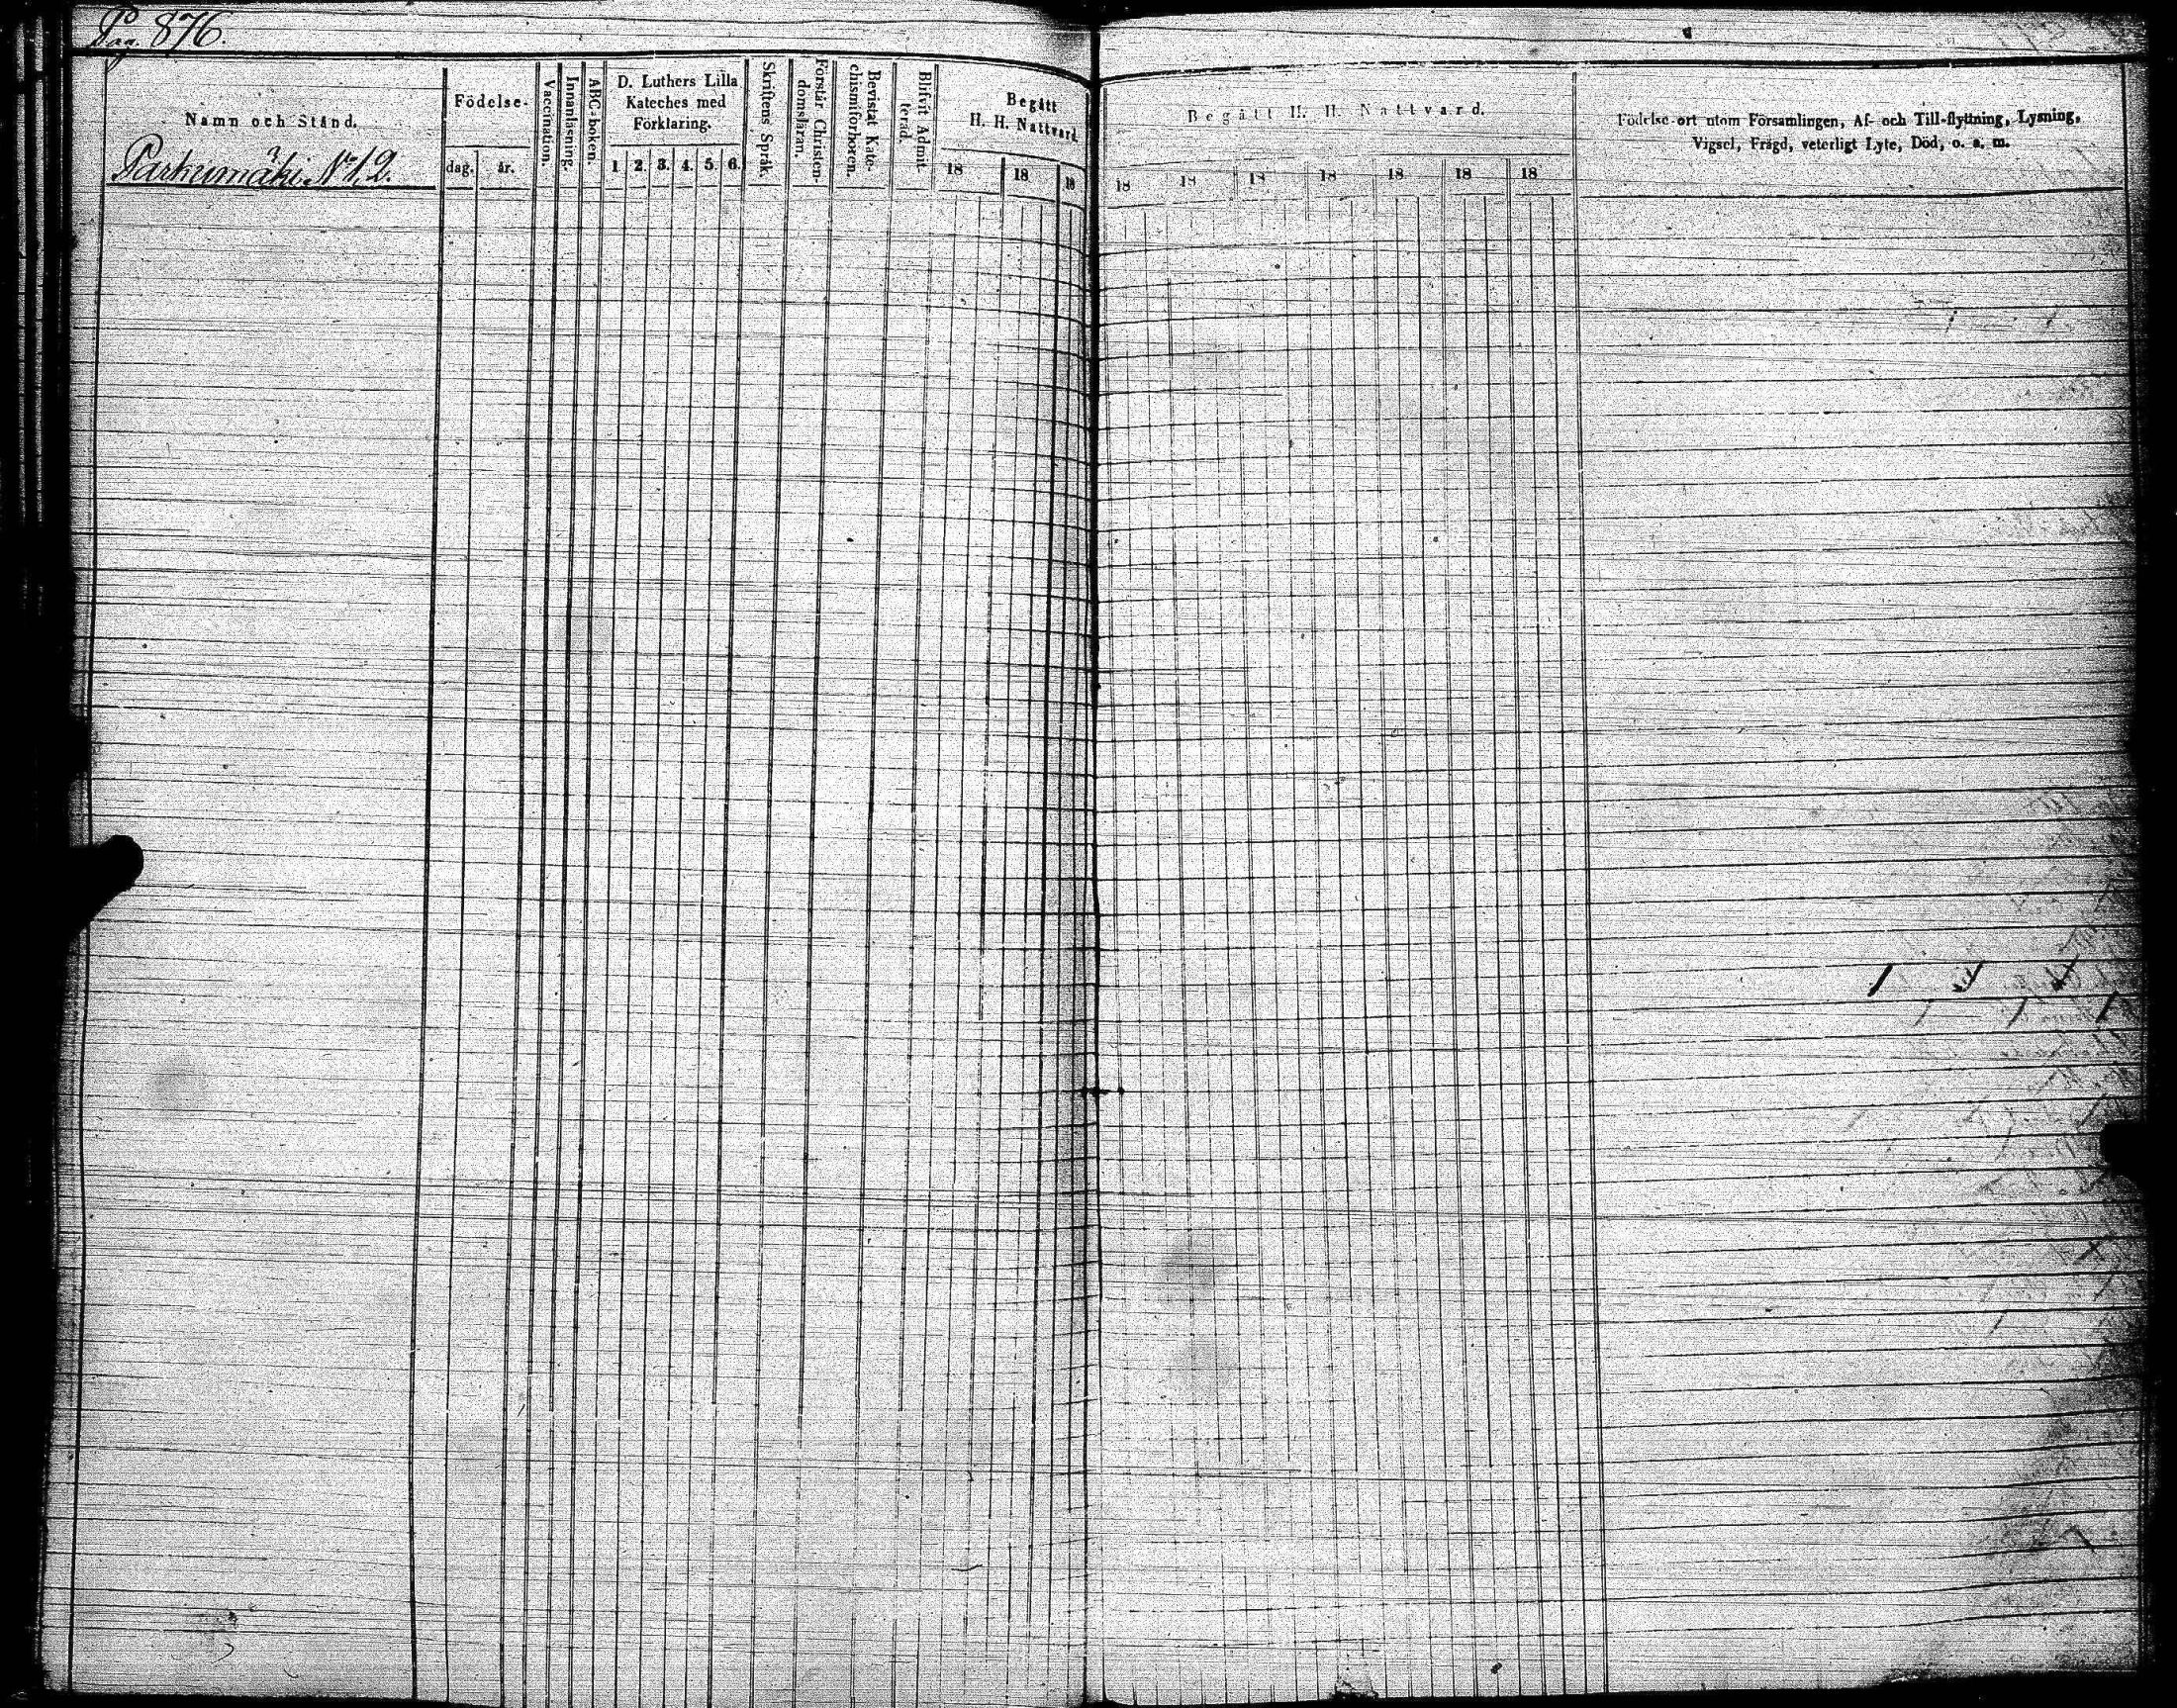 Pag. 876.
Namn och Stånd.
Parkumäki N:o 12.
Födelse-
dag. år.
Vaccination.
Innanläsning.
ABC-boken.
D. Luthers Lilla
Kateches med
Förklaring.
1 2. 3. 4. 5. 6.
Skriftens Språk.
Förstår Christen-
domsläran.
Bevistat Kate-
chismiförhören.
Blifvit Admit-
terad.
Begått
H. H. Nattvard
18 18 18
Begått H. H. Nattvard.
18 18 18 18 18 18 18
Födelse-ort utom Församlingen, Af- och Till-flyttning, Lysning,
Vigsel, Frägd, veterligt Lyte, Död, o. s. m.